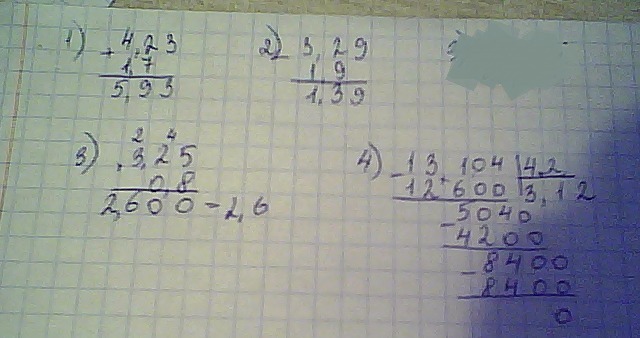 1) + 4,23
1,7
5,93
2) - 3,29
1,9
1,39
3) 2 4
. 3,25
0,8
2,600 - 2,6
4) - 13,104 | 4,2
12 600 3,12
- 5040
4200
- 8400
8400
0